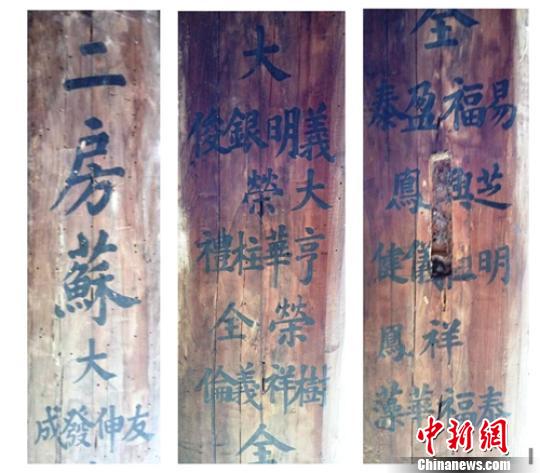 二
房
蘇
大
友伸發成
大
義明銀俊
大榮
亨華柱禮
榮全
樹祥義倫
全
全
易福盈泰
芝興鳳
明儀健
祥鳳
春福華藻
中新網
Chinanews.com